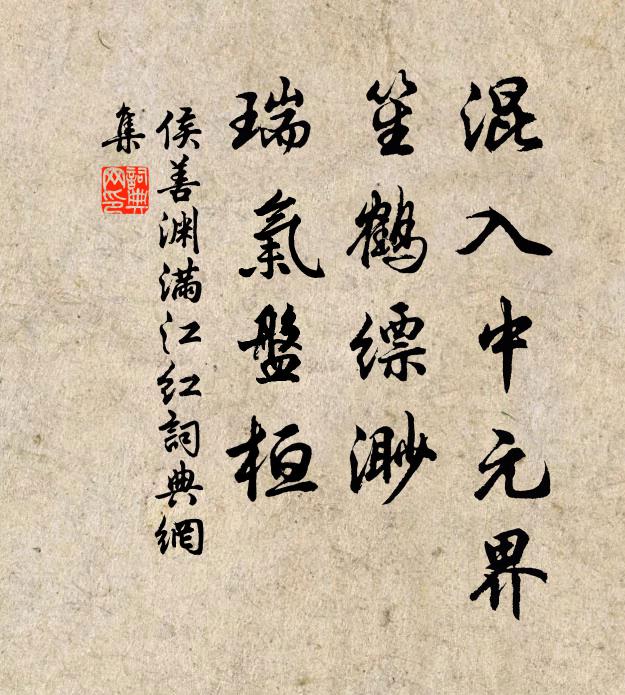 混入中元界
笙鶴縹渺
瑞氣盤桓
侯善渊滿江红詞典網
集
詞典
网印